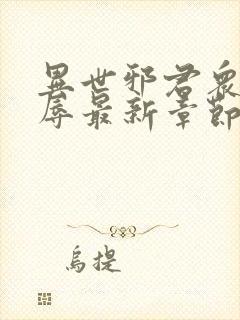 異世邪君衆
辱最新章節
烏提